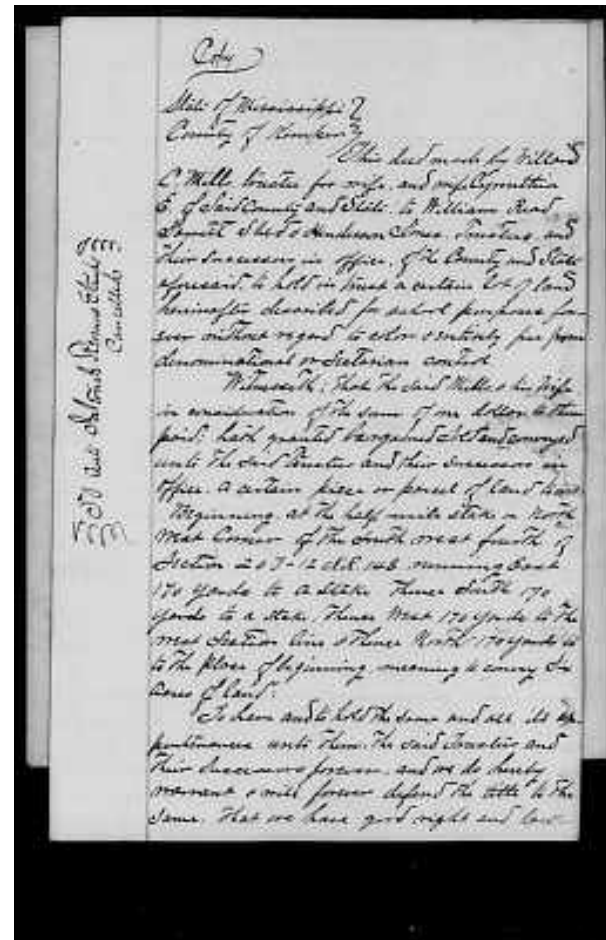 Copy
State of Mississippi
County of Kemper
This deed made by Willard
C. Mills, trustee for wife, and wife
E. of Said County and State, to William Read
Samuel & Henderson Trustees, and
their successors in office, of the County and State
aforesaid, to hold in trust a certain lot of land
hereinafter described for school purposes for-
ever without regard to color & entirely free from
denominational or Sectarian control
Witnesseth, that the said Mills & his wife
in consideration of the sum of one dollar to them
paid, hath granted bargained sold and conveyed
unto the said Trustees and their successors in
office. a certain piece or parcel of land
Beginning at the half mile stake or North
West Corner of the South west fourth of
Section running East
170 yards to a stake thence South 170
yards to a stake, thence West 170 yards to the
west Section line & thence North 170 yards
to the place of beginning meaning to convey Six
acres of land.
To have and to hold the same and all its ap-
purtenances unto them, the said Trustees and
their Successors forever, and we do hereby
warrant & will forever defend the title to the
same. That we have good right and law-
50 Cent
Cancelled